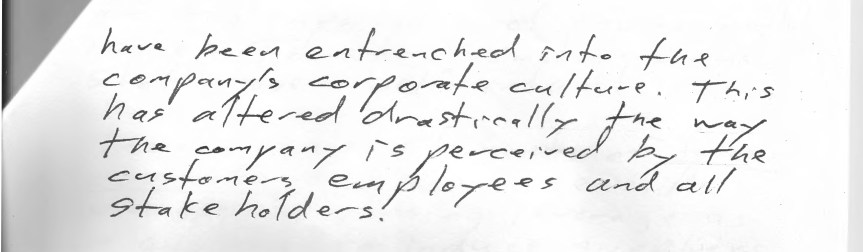 have been entrenched into the
company's corporate culture. This
has altered drastically the way
the company is perceived by the
customers, employees and all
stake holders.